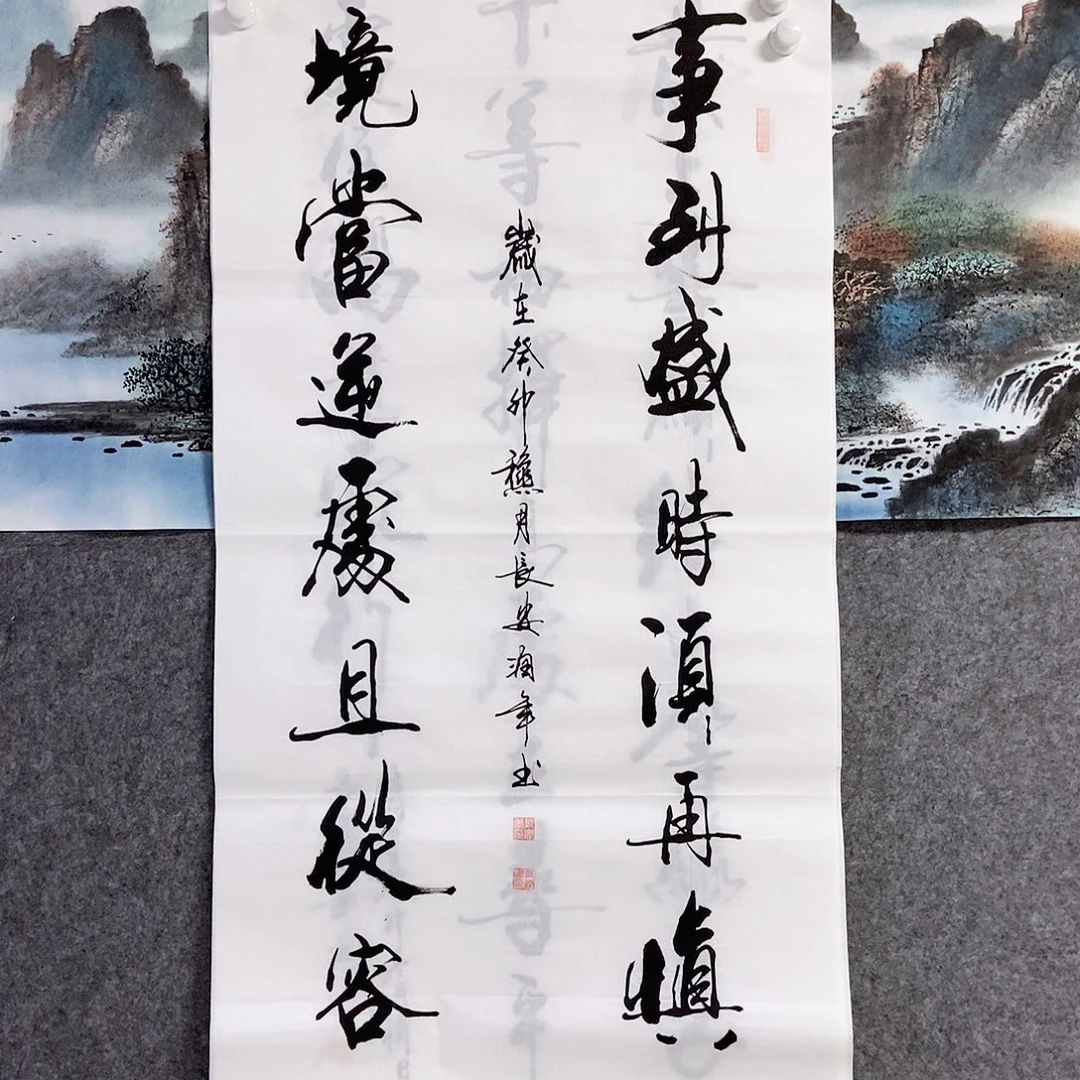 事到盛時須再慎
境當逆處且從容
歲在癸卯龝月長安海年书